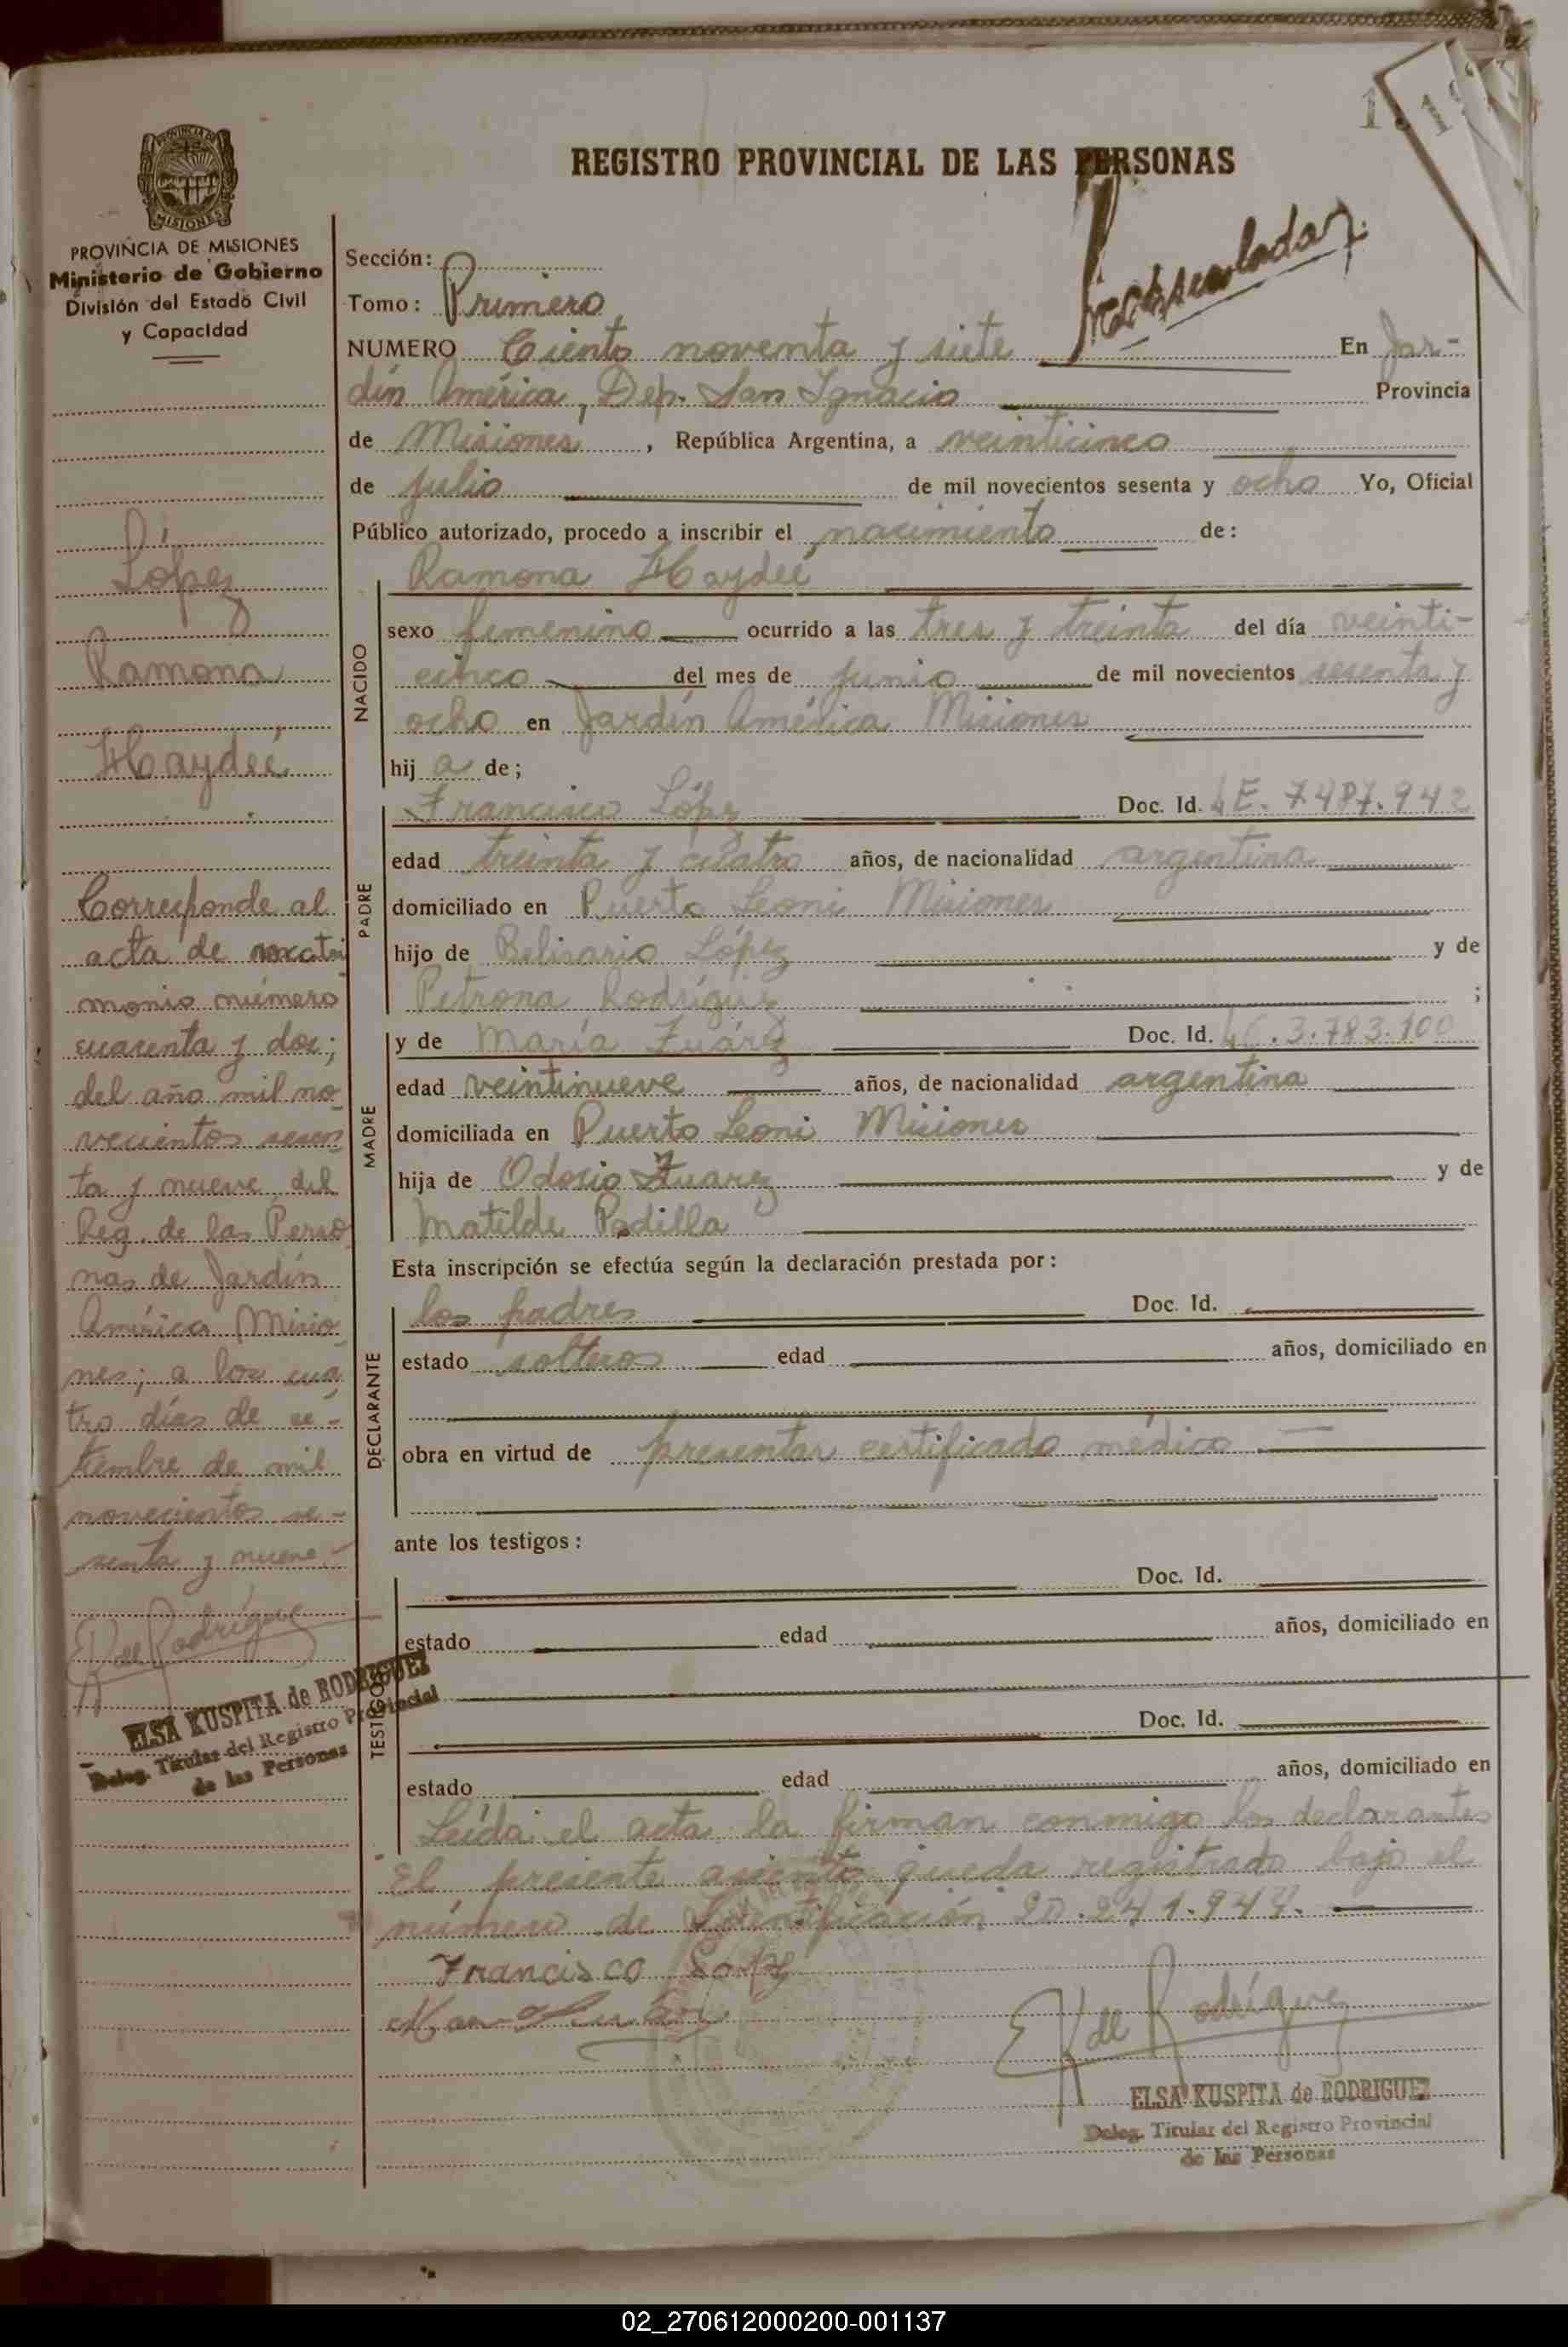 REGISTRO PROVINCIAL DE LAS PERSONAS
PROVINCIA DE MISIONES
Ministerio de Gobierno
División del Estado Civil
y Capacidad
López
Ramona
Haydeé
Corresponde al
acta de matri
monio número
cuarenta y dos;
del año mil no
vecientos sesen
ta y nueve del
Reg. de las Perso
nas de Jardín
América Misio
nes; a los cua
tro días de se-
tiembre de mil
novecientos se-
senta y nueve.-
E K de Rodríguez
ELSA KUSPITA de RODRIGUEZ
Deleg. Titular del Registro Provincial
de las Personas
Sección:
Tomo: Primero
NUMERO Ciento noventa y siete En Jar-
dín América, Dep. San Ignacio Provincia
de Misiones, República Argentina, a veinticinco
de julio de mil novecientos sesenta y ocho Yo, Oficial
Público autorizado, procedo a inscribir el nacimiento de:
NACIDO
Ramona Haydeé
sexo femenino ocurrido a las tres y treinta del día veinti-
cinco del mes de junio de mil novecientos sesenta y
ocho en Jardín América Misiones
hij a de;
PADRE
Francisco López Doc. Id. LE. 7487.942
edad treinta y cuatro años, de nacionalidad argentina
domiciliado en Puerto Leoni Misiones
hijo de Belisario López y de
Petrona Rodríguez ;
MADRE
y de María Zuárez Doc. Id. LC. 3.783.100
edad veintinueve años, de nacionalidad argentina
domiciliada en Puerto Leoni Misiones
hija de Odosio Zuarez y de
Matilde Padilla
Esta inscripción se efectúa según la declaración prestada por:
DECLARANTE
los padres Doc. Id.
estado solteros edad años, domiciliado en
obra en virtud de presentar certificado médico
ante los testigos:
TESTIGOS
Doc. Id.
estado edad años, domiciliado en
Doc. Id.
estado edad años, domiciliado en
Leída el acta la firman conmigo los declarantes
El presente asiento queda registrado bajo el
número de Identificación 20.241.944.
Francisco López
E K de Rodríguez
ELSA KUSPITA de RODRIGUEZ
Deleg. Titular del Registro Provincial
de las Personas
02_270612000200-001137